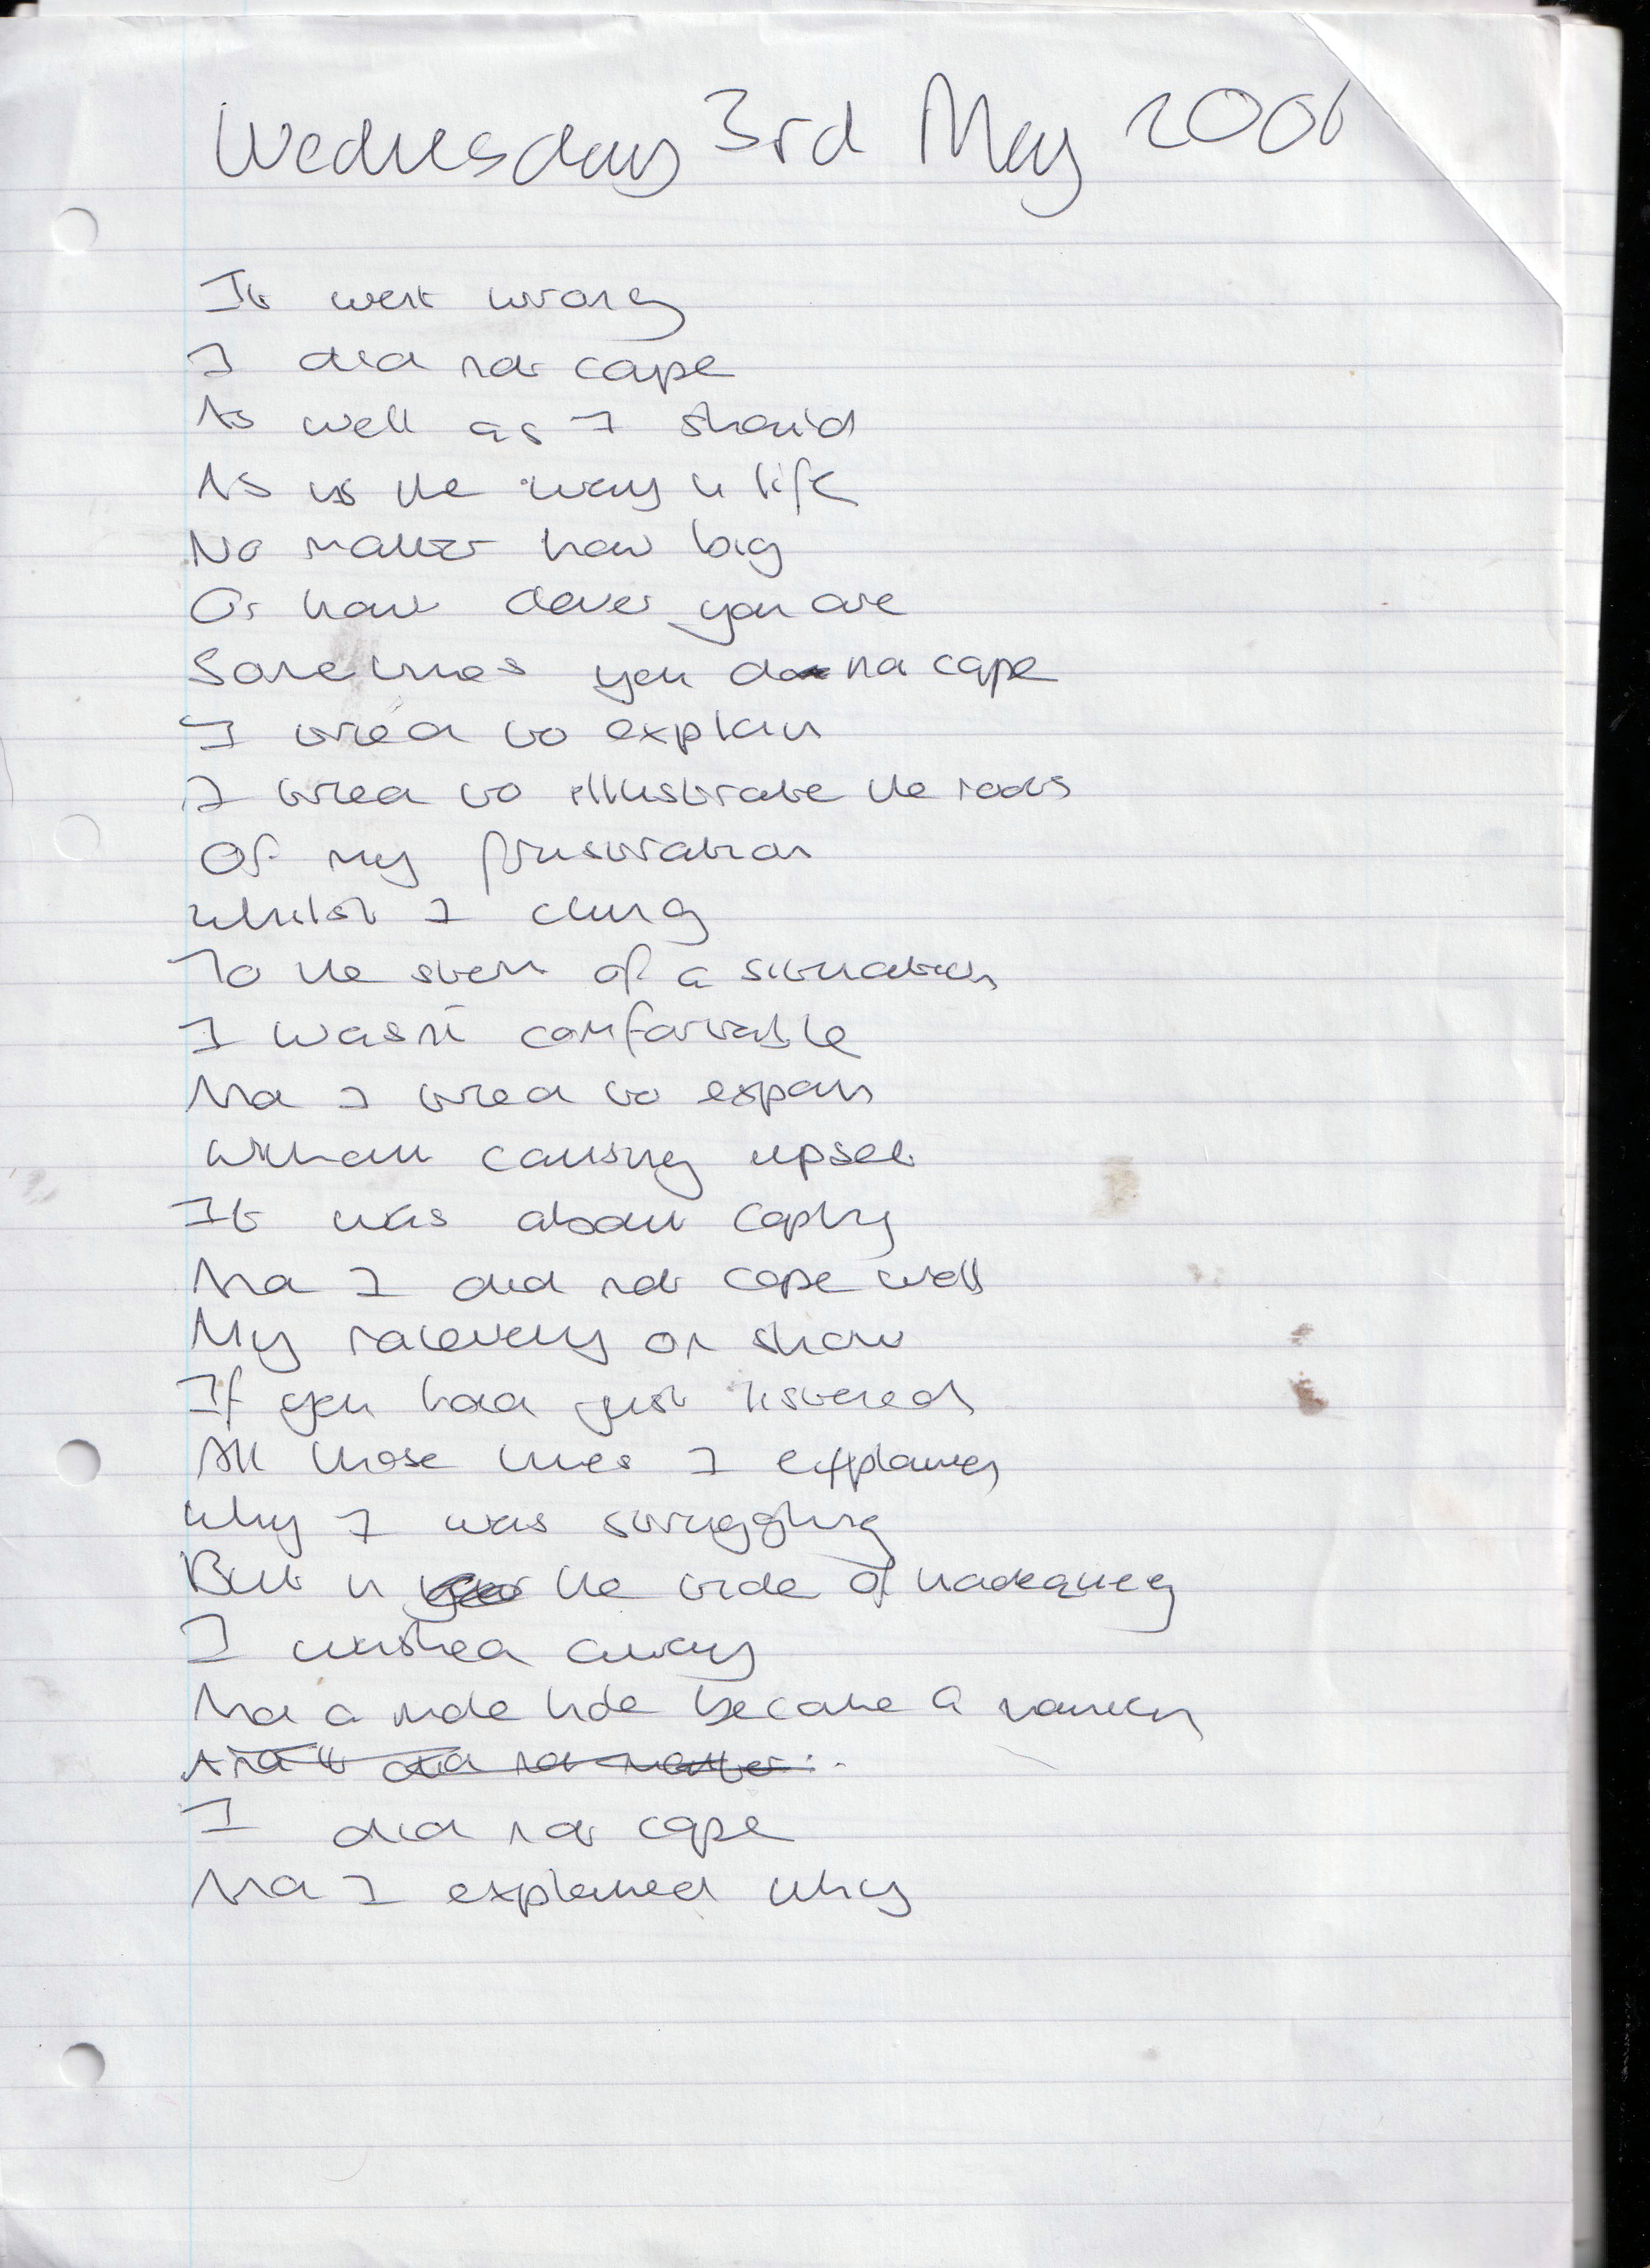 Wednesday 3rd May 2006
It went wrong
I did not cope
As well as I should
As is the way in life
No matter how big
Or how clever you are
Sometimes you do no cope
I tried to explain
I tried to illustrate the roots
Of my frustration
Whilst I clung
To the stem of a situation
I wasn't comfortable
And I tried to
Without causing upset
It was about coping
And I did not cope well
My recovery on show
If you had just listened
All those times I
Why I was struggling
But in the tide of inadequacy
I washed away
And a inde tide became a
And it did not matter...
I did not cope
And I explained why